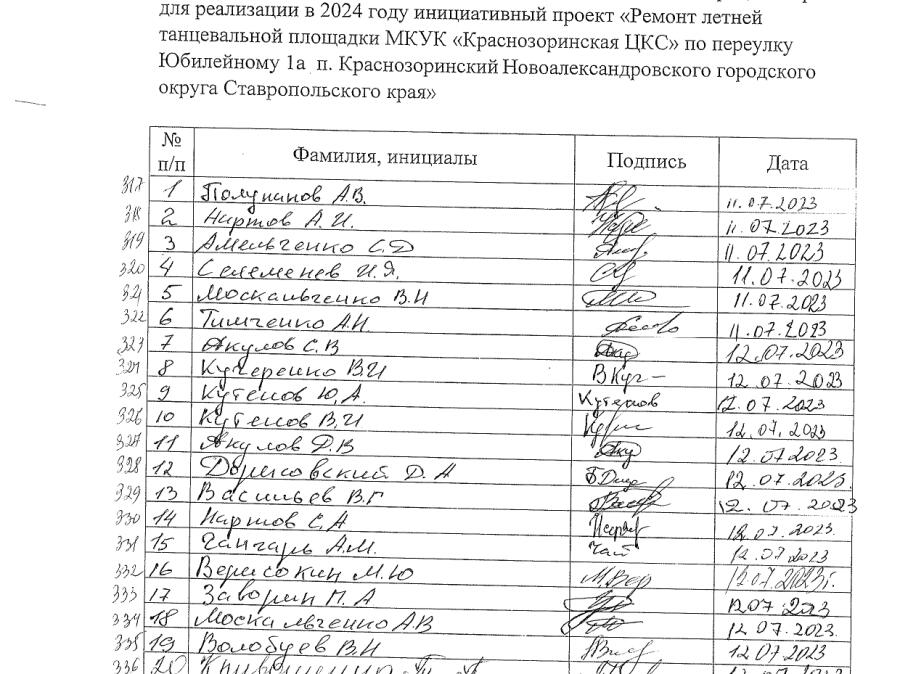 для реализации в 2024 году инициативный проект «Ремонт летней
танцевальной площадки МКУК «Краснозоринская ЦКС» по переулку
Юбилейному 1а п. Краснозоринский Новоалександровского городского
округа Ставропольского края»
№ п/п Фамилия, инициалы Подпись Дата
317 1 Полупанов А.В. 11.07.2023
318 2 Нартов А.И. 11.07.2023
319 3 Амельченко С.Д 11.07.2023
320 4 Селеменев И.Я. 11.07.2023
321 5 Москальченко В.Н 11.07.2023
322 6 Тимченко А.И. 11.07.2023
323 7 Акулов С.В 12.07.2023
324 8 Кучеренко В.И 12.07.2023
325 9 Кутепов Ю.А. 12.07.2023
326 10 Кутепов В.И 12.07.2023
327 11 Акулов Д.В 12.07.2023
328 12 Д.А 12.07.2023.
329 13 Васильев В.Г 12.07.2023
330 14 Нартов С.А 12.07.2023
331 15 А.М. 12.07.2023
332 16 Верисокин М.Ю М.Вер 12.07.2023г.
333 17 Заворин П.А 12.07 2023
334 18 Москальченко А.В 12.07.2023.
335 19 Волобуев В.Н 12.07.2023
336 20